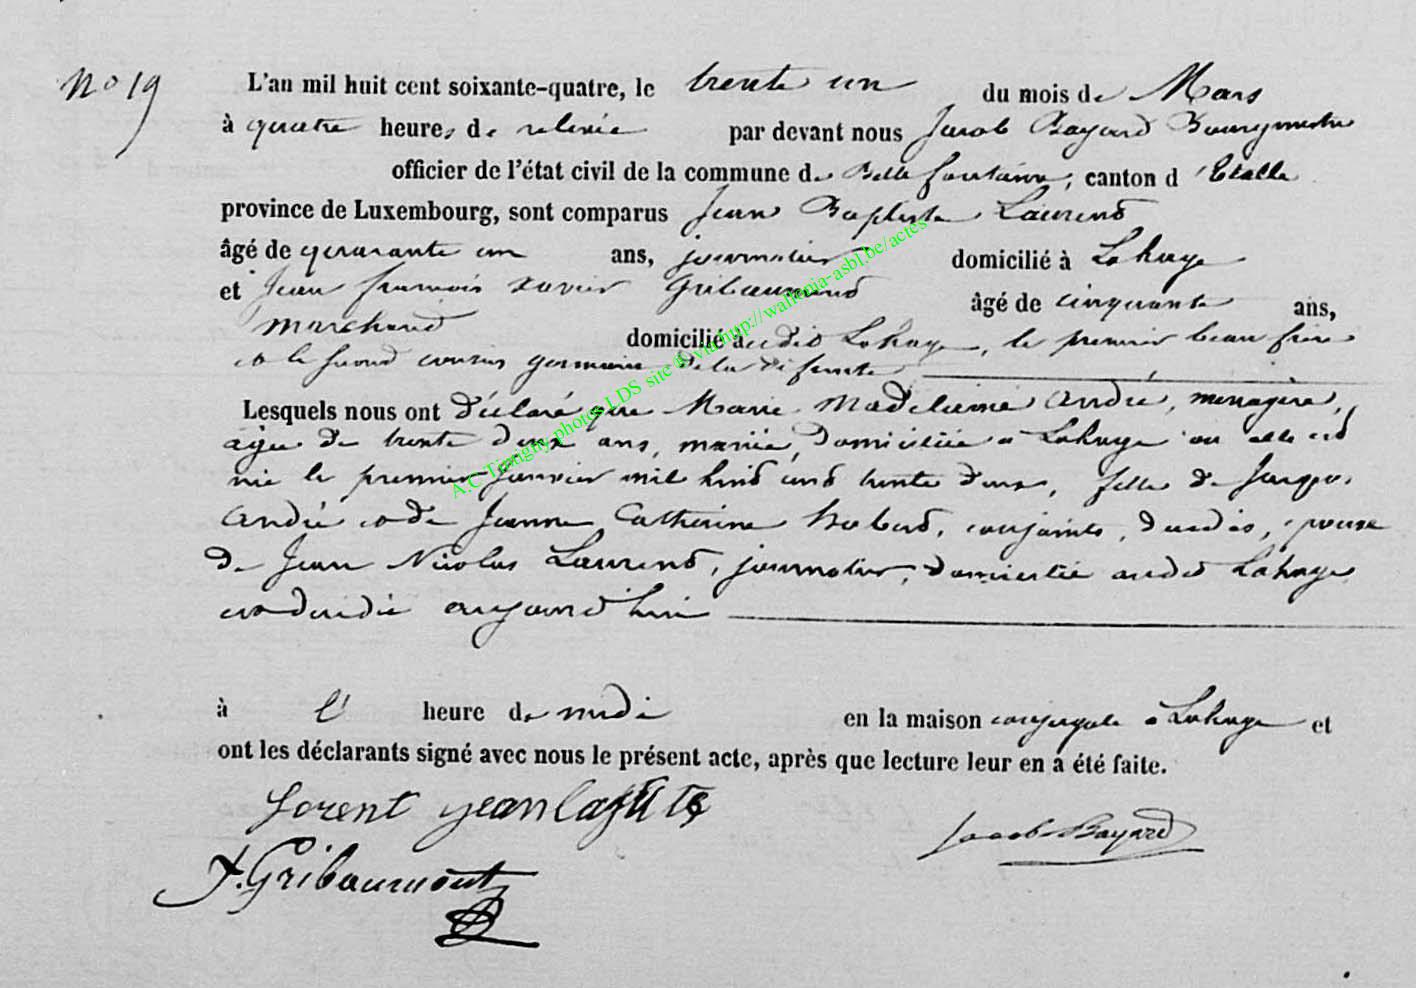 No 19
L'an mil huit cent soixante-quatre, le trente un du mois de Mars
à quatre heures de relevée par devant nous Jacob Bayard Bourgmestre
officier de l'état civil de la commune de Bellefontaine, canton d'Etalle
province de Luxembourg, sont comparus Jean Baptiste Laurent
âgé de quarante un ans, journalier domicilié à Lahage
et Jean françois xavier Gribaumont âgé de cinquante ans,
marchand domicilié audit Lahage, le premier beau frère
et le second cousin germain de la défunte
Lesquels nous ont déclaré que Marie Madelaine André, ménagère,
agée de trente deux ans, mariée, domiciliée à Lahage où elle est
née le premier Janvier mil huit cent trente deux, fille de Jacques
André et de Jeanne Catherine Hubert, conjoints, décédés, épouse
de Jean Nicolas Laurent, journalier, domicilié audit Lahage
est décédée aujourd'hui
à l' heure de midi en la maison conjugale à Lahage et
ont les déclarants signé avec nous le présent acte, après que lecture leur en a été faite.
Lorent jean
Jacob Bayard
f. Gribaumont
A.C Tintigny photos LDS site & via http://wallonia-asbl.be/actes